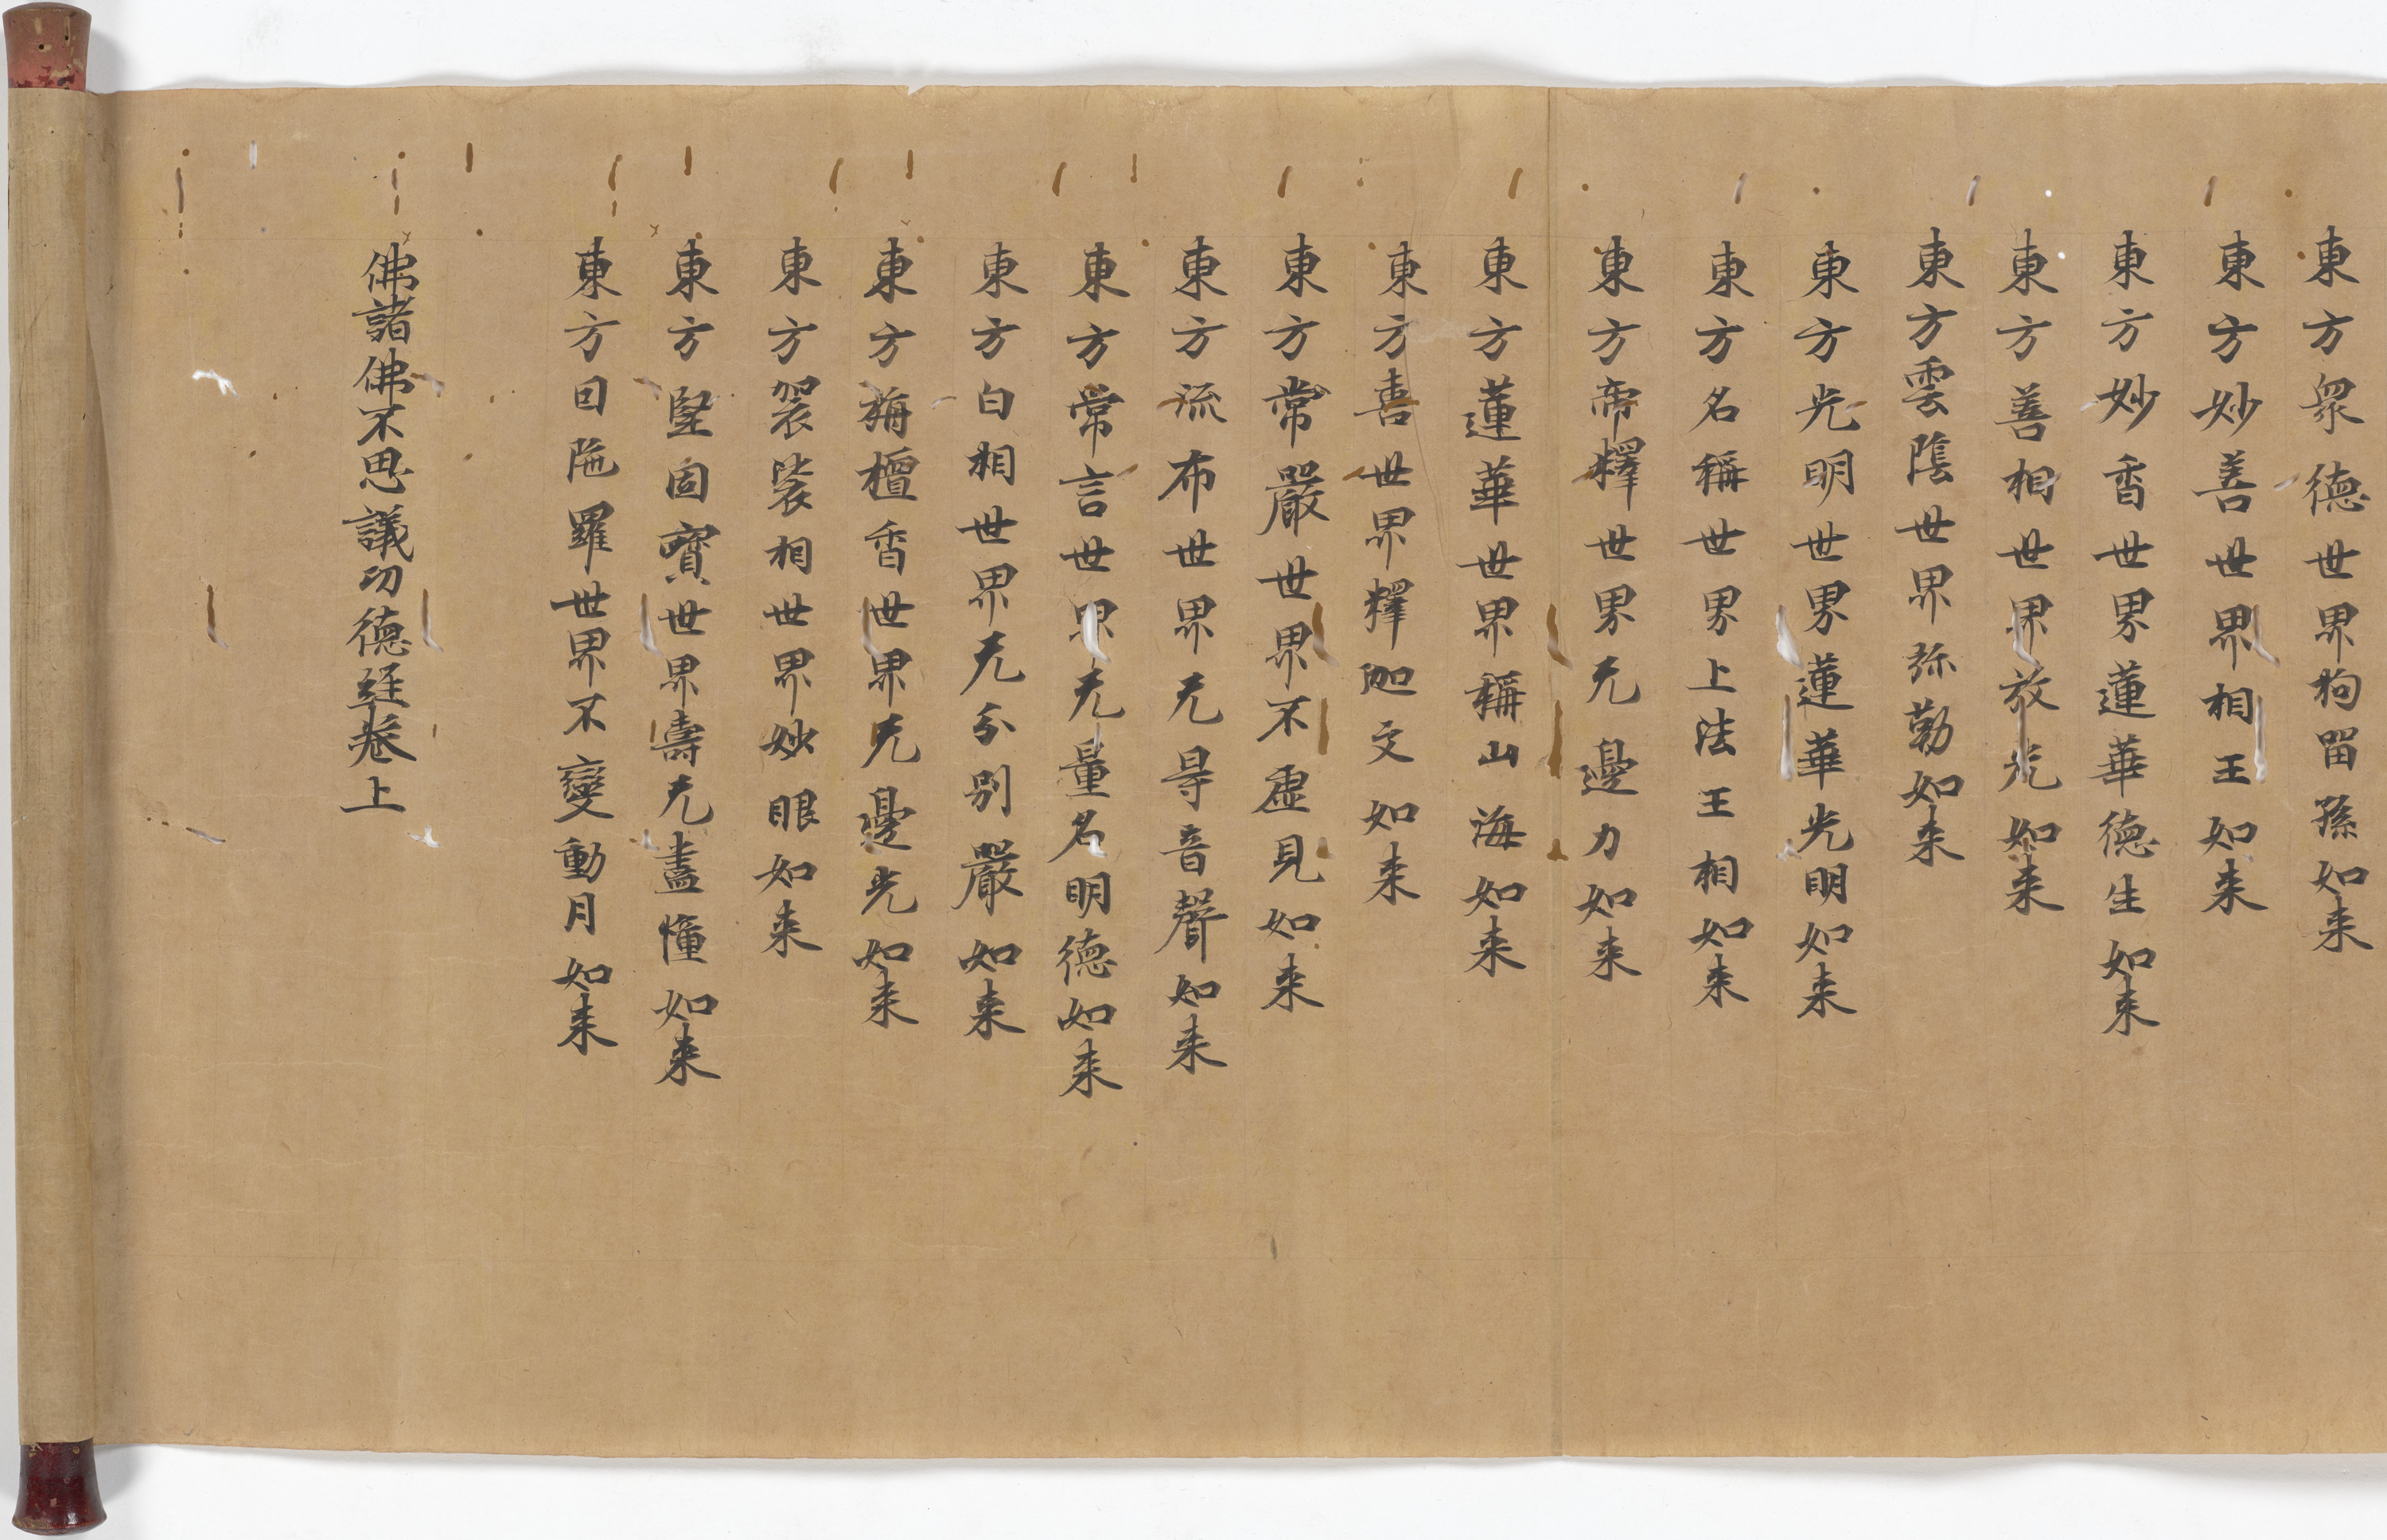 東方衆德世界狗留孫如来
東方妙善世界相王如来
東方妙香世界蓮華德生如来
東方善相世界放光如来
東方雲蔭世界弥勒如来
東方光明世界蓮華光明如来
東方名稱世界上法王相如来
東方帝釋世界无邊力如来
東方蓮華世界稱山海如来
東方喜世界釋迦文如来
東方常嚴世界不虛見如来
東方流布世界无㝵音聲如来
東方常言世界无量名明德如来
東方白相世界无分別嚴如来
東方栴檀香世界无邊光如来
東方袈裟相世界妙眼如来
東方堅固寳世界壽无盡憧如来
東方曰陁羅世界不變動月如来
佛諸佛不思議功德経巻上